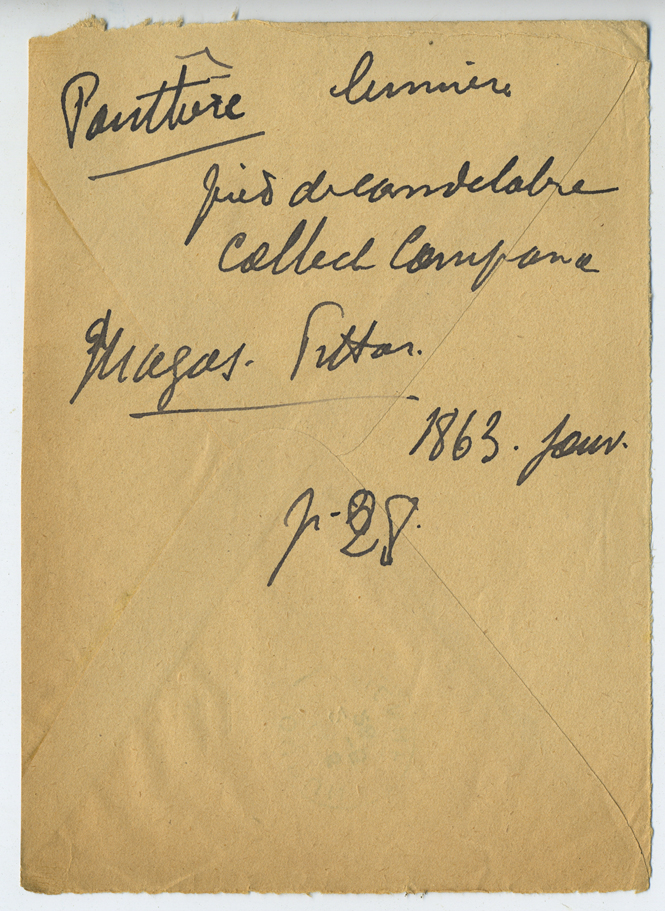 Panthère lumière
pied de candelabre
Collect Campana
Magas. Pittor.
1863. janv.
p-28.